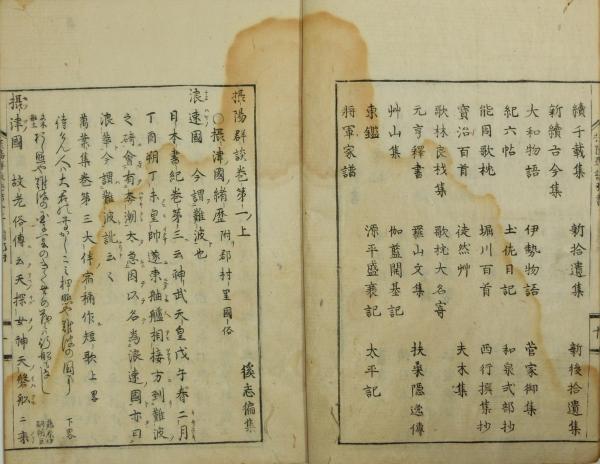 續千載集 新拾遺集 新後拾遺集
新續古今集
大和物語 伊勢物語 菅家御集
紀六帖 土佐日記 和泉式部抄
能因歌枕 堀川百首 西行撰集抄
寶治百首 徒然艸 夫木集
歌林良枝集 歌枕大名寄
元亨釋書 羅山文集 扶桒隠逸傳
艸山集 伽藍開基記
東鑑 源平盛衰記 太平記
将軍家譜
摂陽群談巻第一上
○摂津國緒歴 附郡村里國俗 俊志倫集
浪速國 今謂難波也
日本書紀巻第三云神武天皇戊午春二月
丁酉朔丁未皇帥遂東舳艫相接方到難波
之碕會有奔潮太急因以名為浪速國亦曰
浪華今謂難波訛云〻
萬葉集巻第三大伴宿祢作短歌上畧
下畧
摂津國 故老俗傳云天探女神天磐舩ニ乗